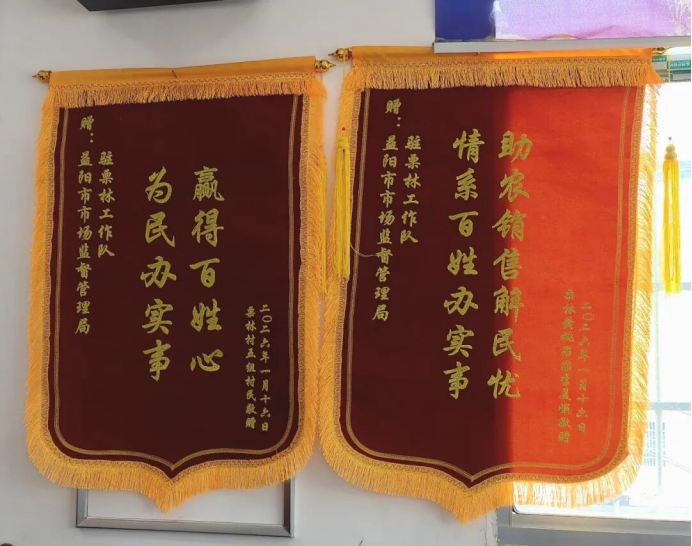 赠：益阳市市场监督管理局
驻栗林工作队
赢得百姓心
为民办实事
栗林村五组村民敬赠
二〇二六年一月十六日
赠：益阳市市场监督管理局
驻栗林工作队
助农销售解民忧
情系百姓办实事
栗林黄桃敬赠
二〇二六年一月十六日